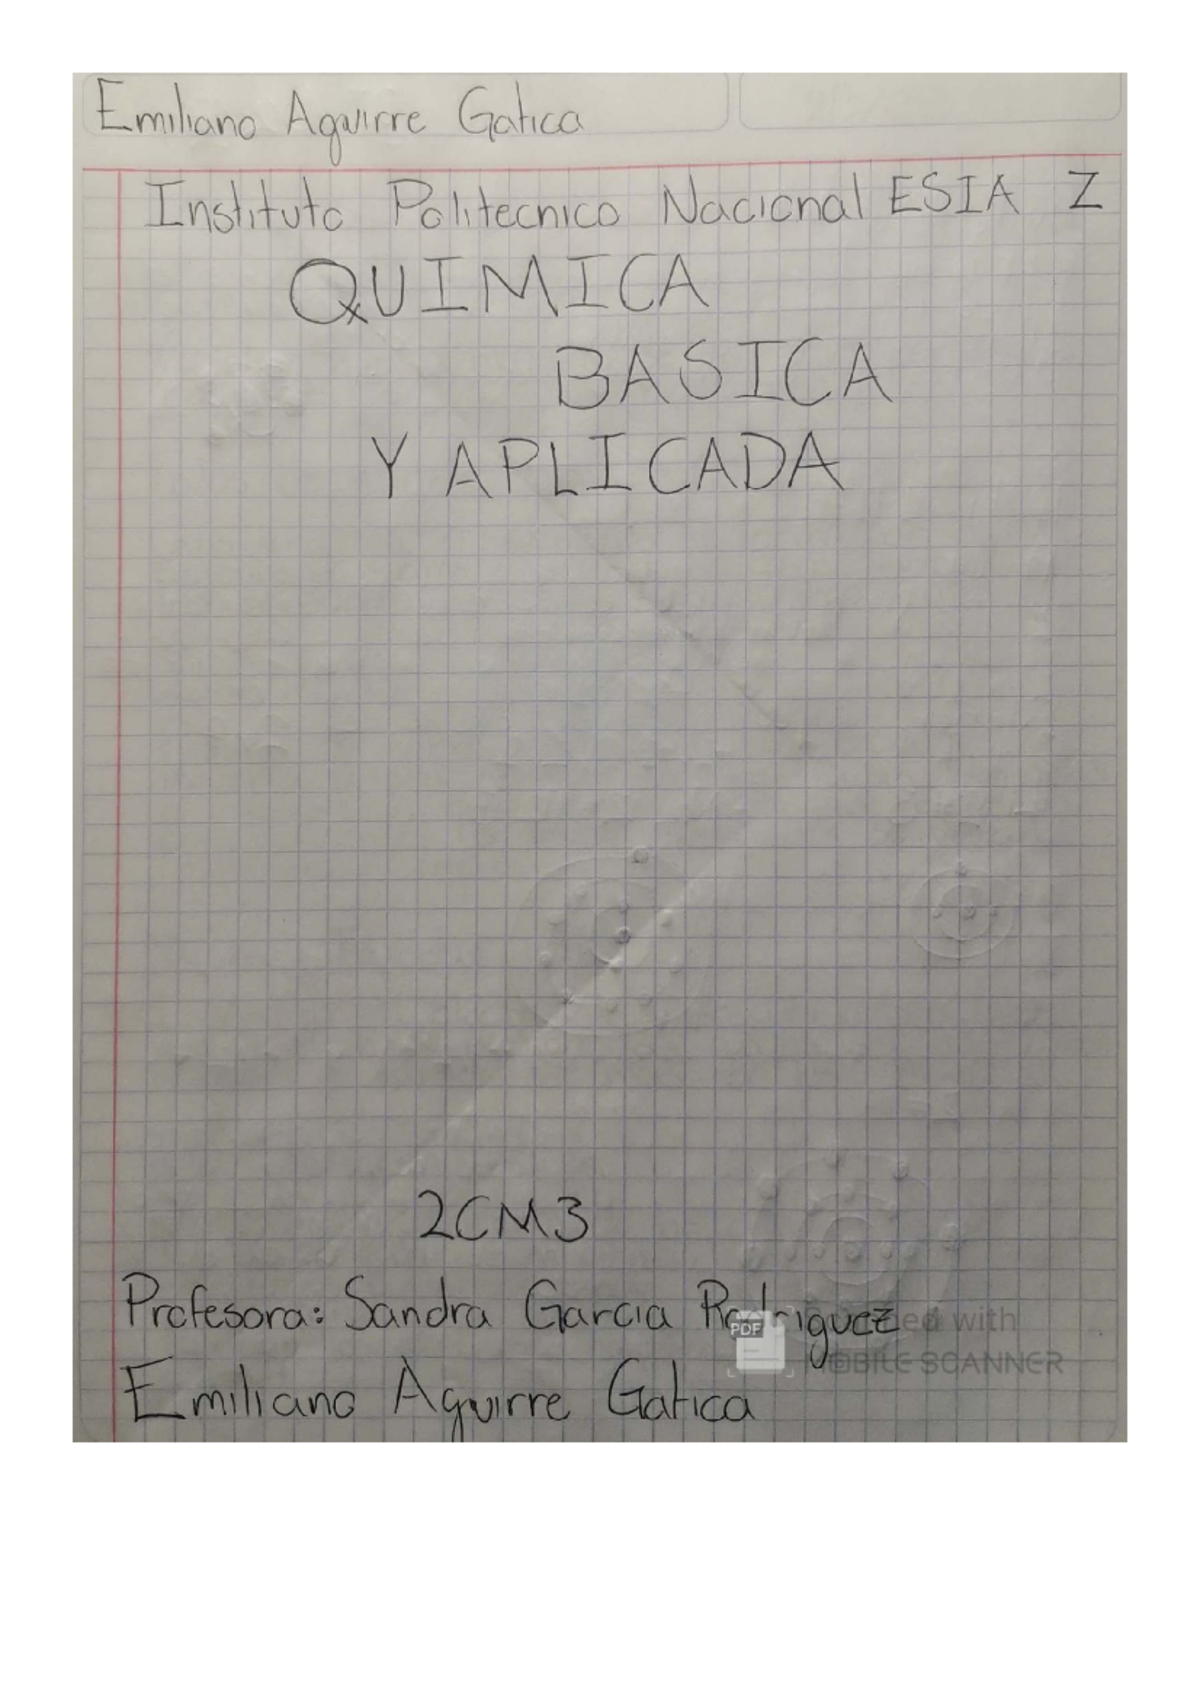 Emiliano Aguirre Gatica
Instituto Politecnico Nacional ESIA Z
QUIMICA
BASICA
Y APLICADA
2CM3
Profesora: Sandra Garcia Rodriguez
PDF
with
MOBILE SCANNER
Emiliano Aguirre Gatica